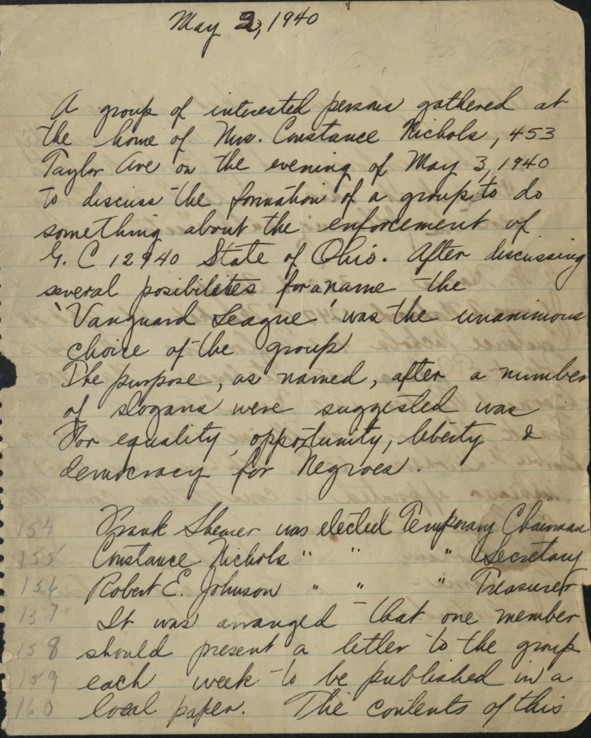 May 2, 1940
A group of interested persons gathered at
the home of Mrs. Constance Nichols, 453
Taylor Ave on the evening of May 3, 1940
to discuss the formation of a group to do
something about the enforcement of
G. C 12940 State of Ohio. After discussing
several posibilites for a name the
'Vanguard League' was the unanimous
choice of the group
The purpose, as named, after a number
of slogans were suggested was
For equality, opportunity, liberty &
democracy for Negroes.
154 Frank Shearer was elected Temporary Chairman
155 Constance Nichols " " " Secretary
156 Robert E. Johnson " " " Treasurer
157 It was arranged that one member
158 should present a letter to the group
159 each week to be published in a
160 local paper. The contents of this